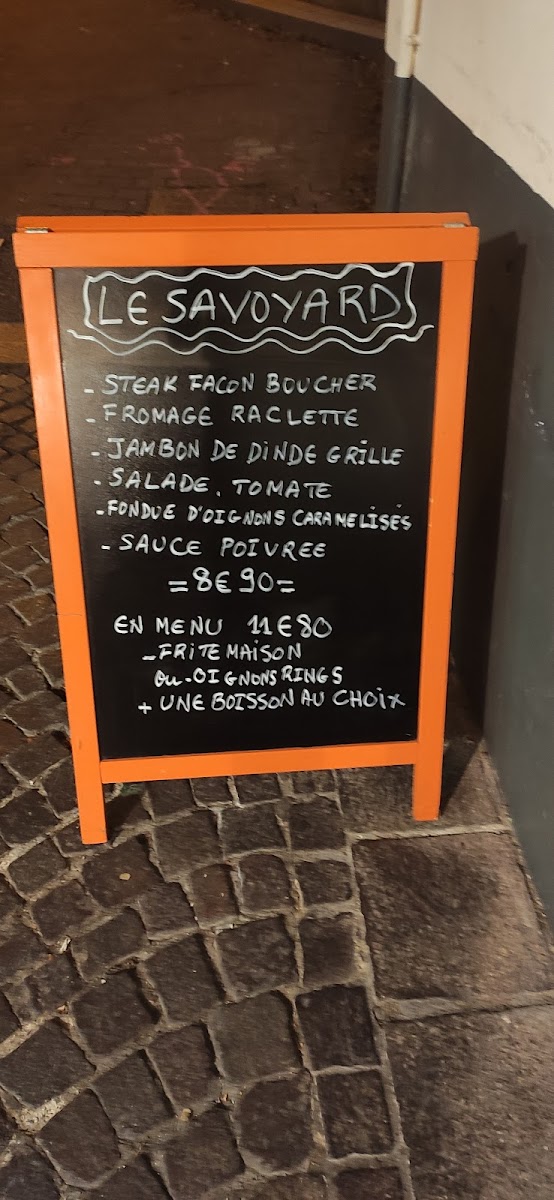 LE SAVOYARD
- STEAK FACON BOUCHER
- FROMAGE RACLETTE
- JAMBON DE DINDE GRILLE
- SALADE, TOMATE
- FONDUE D'OIGNONS CARAMELISÉS
- SAUCE POIVREE
= 8€90 =
EN MENU 11€80
- FRITE MAISON
OU - OIGNONS RINGS
+ UNE BOISSON AU CHOIX